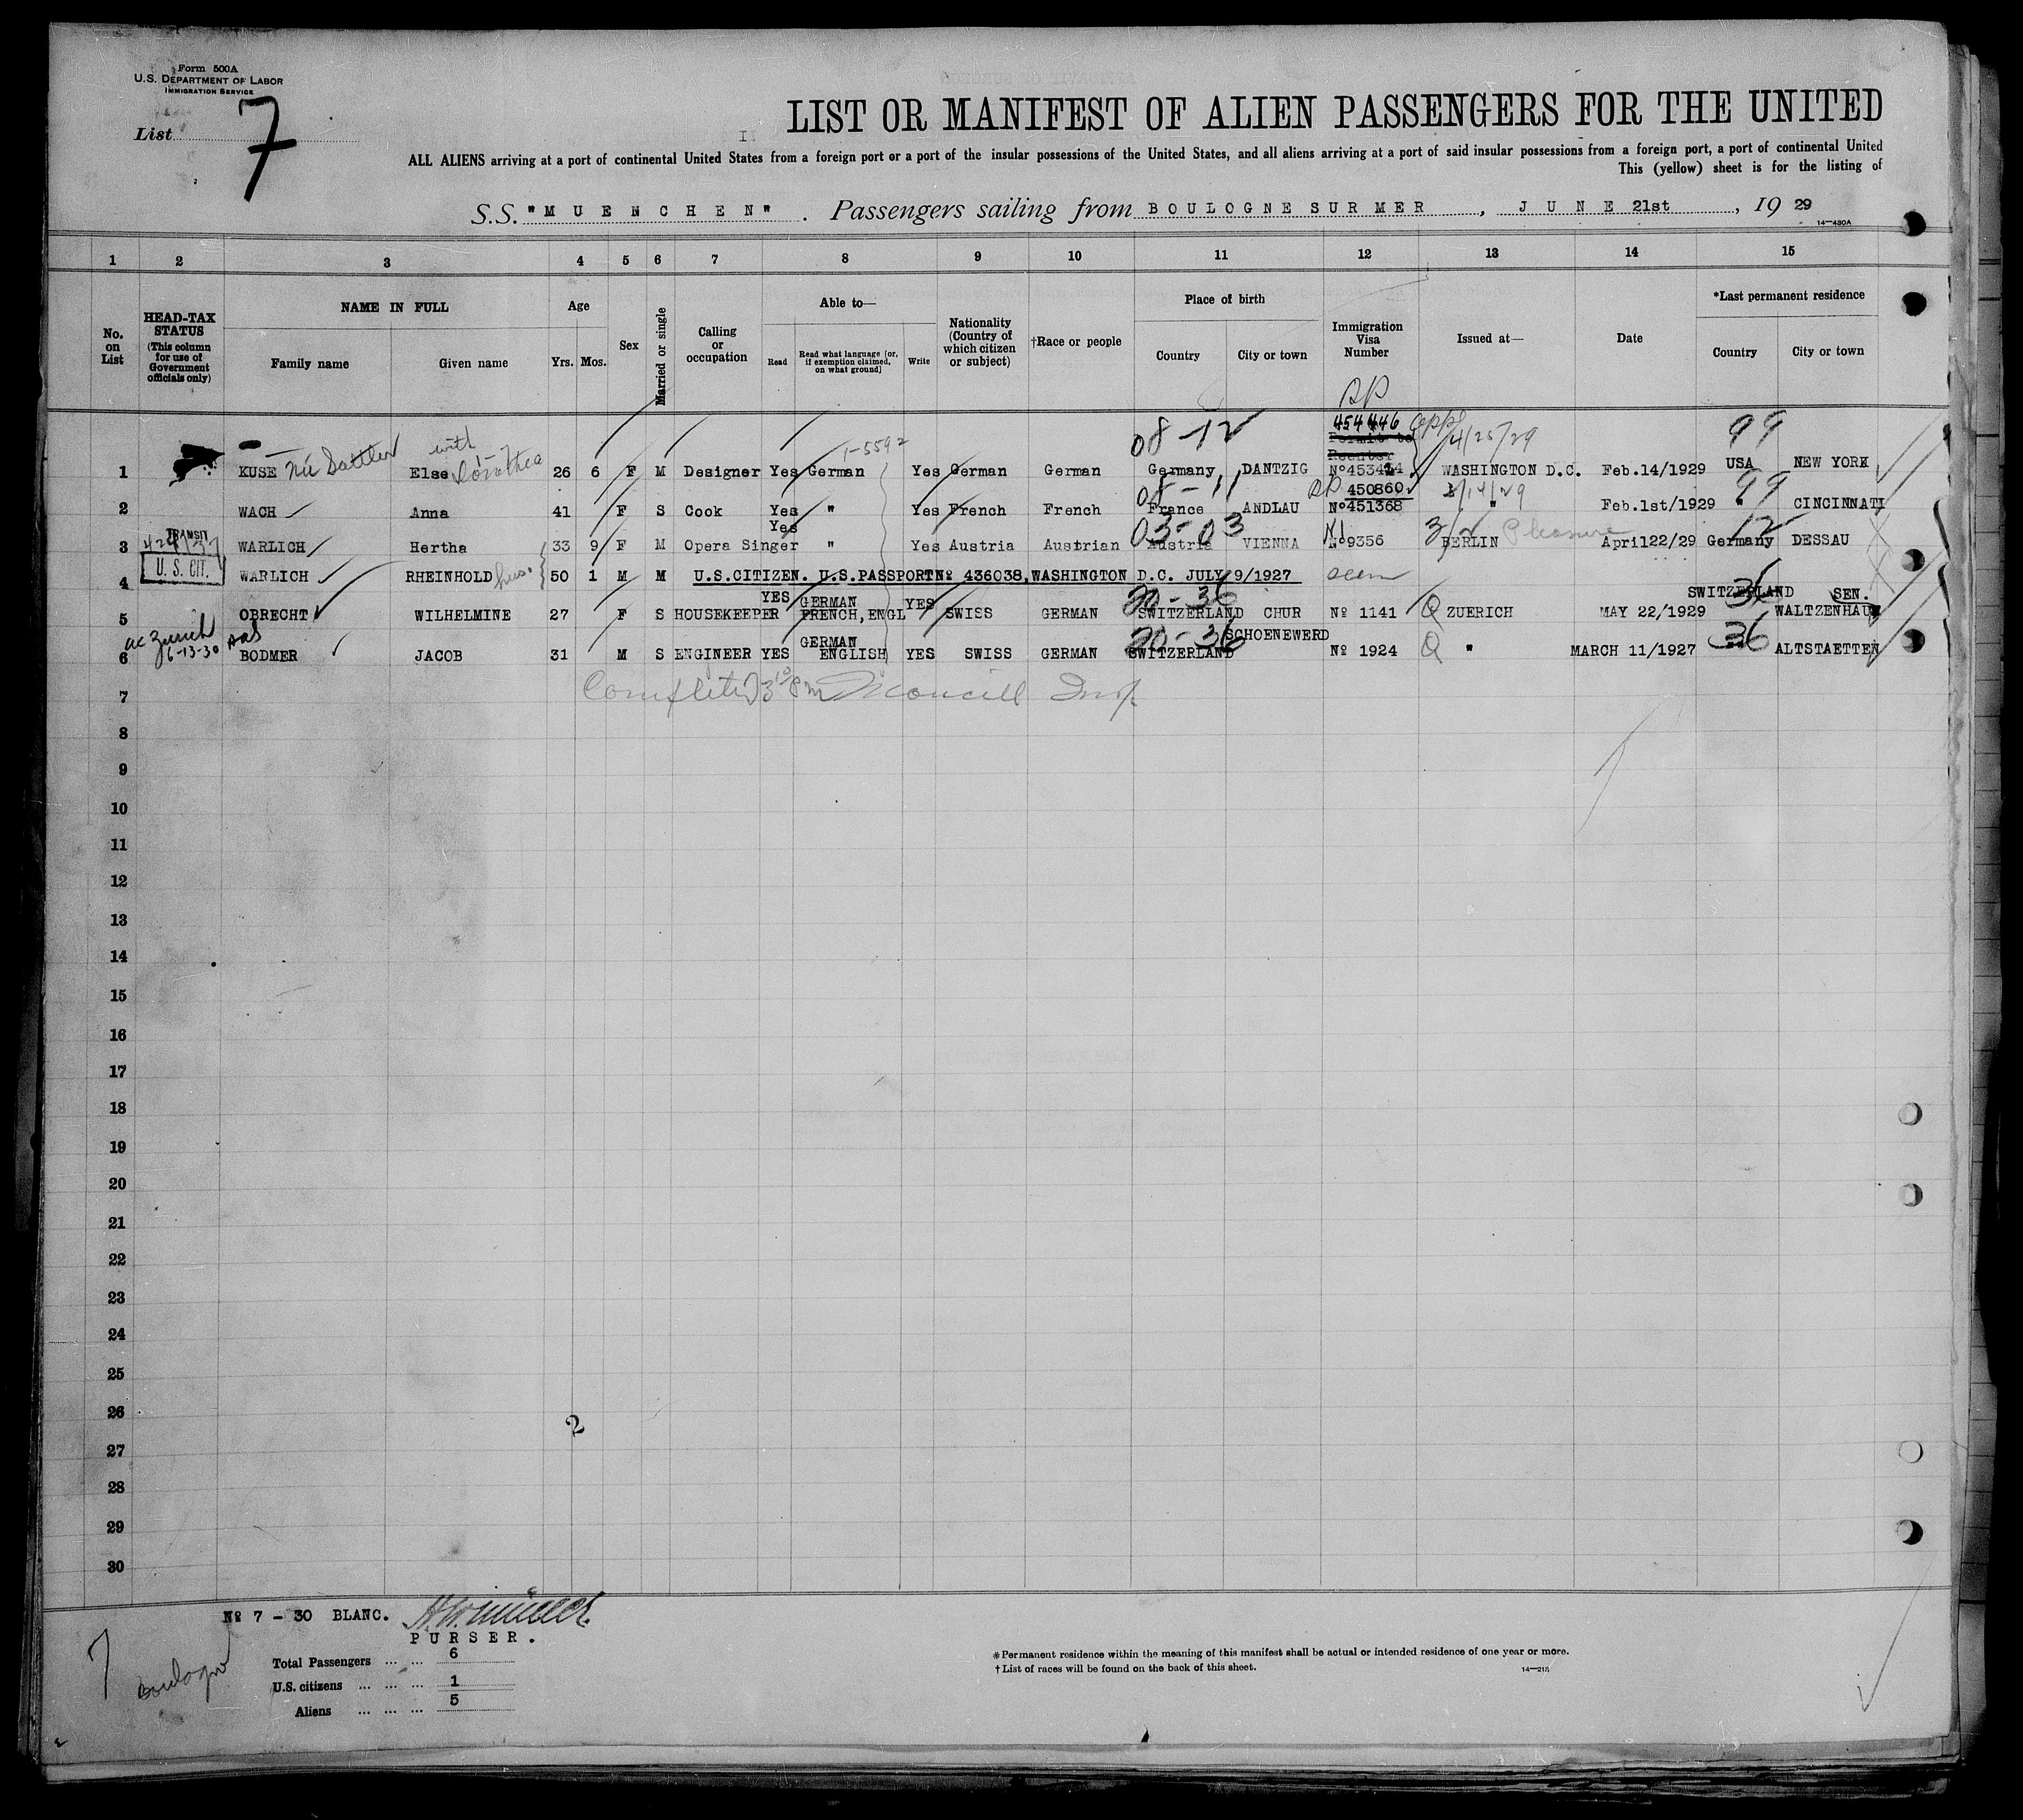 Form 500A
U.S. DEPARTMENT OF LABOR
IMMIGRATION SERVICE
List 7
LIST OR MANIFEST OF ALIEN PASSENGERS FOR THE UNITED
ALL ALIENS arriving at a port of continental United States from a foreign port or a port of the insular possessions of the United States, and all aliens arriving at a port of said insular possessions from a foreign port, a port of continental United
This (yellow) sheet is for the listing of
S.S. "MUENCHEN". Passengers sailing from BOULOGNE SUR MER, JUNE 21st, 19 29
14-430A
1 2 3 4 5 6 7 8 9 10 11 12 13 14 15
No. on List
HEAD-TAX STATUS (This column for use of Government officials only)
NAME IN FULL
Family name Given name
Age
Yrs. Mos.
Sex
Married or single
Calling or occupation
Able to—
Read Read what language [or, if exemption claimed, on what ground] Write
Nationality (Country of which citizen or subject)
†Race or people
Place of birth
Country City or town
Immigration Visa Number
Issued at—
Date
*Last permanent residence
Country City or town
RP
08-12 454446 4/25/29 99
with 1-5592
Permit to
Reenter
1 KUSE Else Dorothea 26 6 F M Designer Yes German Yes German German Germany DANTZIG Nº453424 WASHINGTON D.C. Feb.14/1929 USA NEW YORK
08-11 RP 450860 3/14/29 99
2 WACH Anna 41 F S Cook Yes " Yes French French France ANDLAU Nº451368 " Feb.1st/1929 " CINCINNATI
TRANSIT
03-03 3/2 Pleasure 12
3 WARLICH Hertha 33 9 F M Opera Singer Yes " Yes Austria Austrian Austria VIENNA Nº9356 BERLIN April22/29 Germany DESSAU
U. S. CIT.
4 WARLICH RHEINHOLD hus. 50 1 M M U.S.CITIZEN. U.S.PASSPORTNº 436038,WASHINGTON D.C. JULY 9/1927 seen
20-36 36
5 OBRECHT WILHELMINE 27 F S HOUSEKEEPER YES GERMAN FRENCH,ENGL YES SWISS GERMAN SWITZERLAND CHUR Nº 1141 Q ZUERICH MAY 22/1929 SWITZERLAND SEN. WALTZENHAUS
Zurich 6-13-30
20-36 36
6 BODMER JACOB 31 M S ENGINEER YES GERMAN ENGLISH YES SWISS GERMAN SWITZERLAND SCHOENEWERD Nº 1924 Q " MARCH 11/1927 ALTSTAETTEN
7 Completed 3 10 pm Insp.
8
9
10
11
12
13
14
15
16
17
18
19
20
21
22
23
24
25
26
2
27
28
29
30
Nº 7 - 30 BLANC.
PURSER.
7 Boulogne
Total Passengers ... ... 6
U.S. citizens ... ... ... 1
Aliens ... ... ... 5
*Permanent residence within the meaning of this manifest shall be actual or intended residence of one year or more.
†List of races will be found on the back of this sheet.
14-213